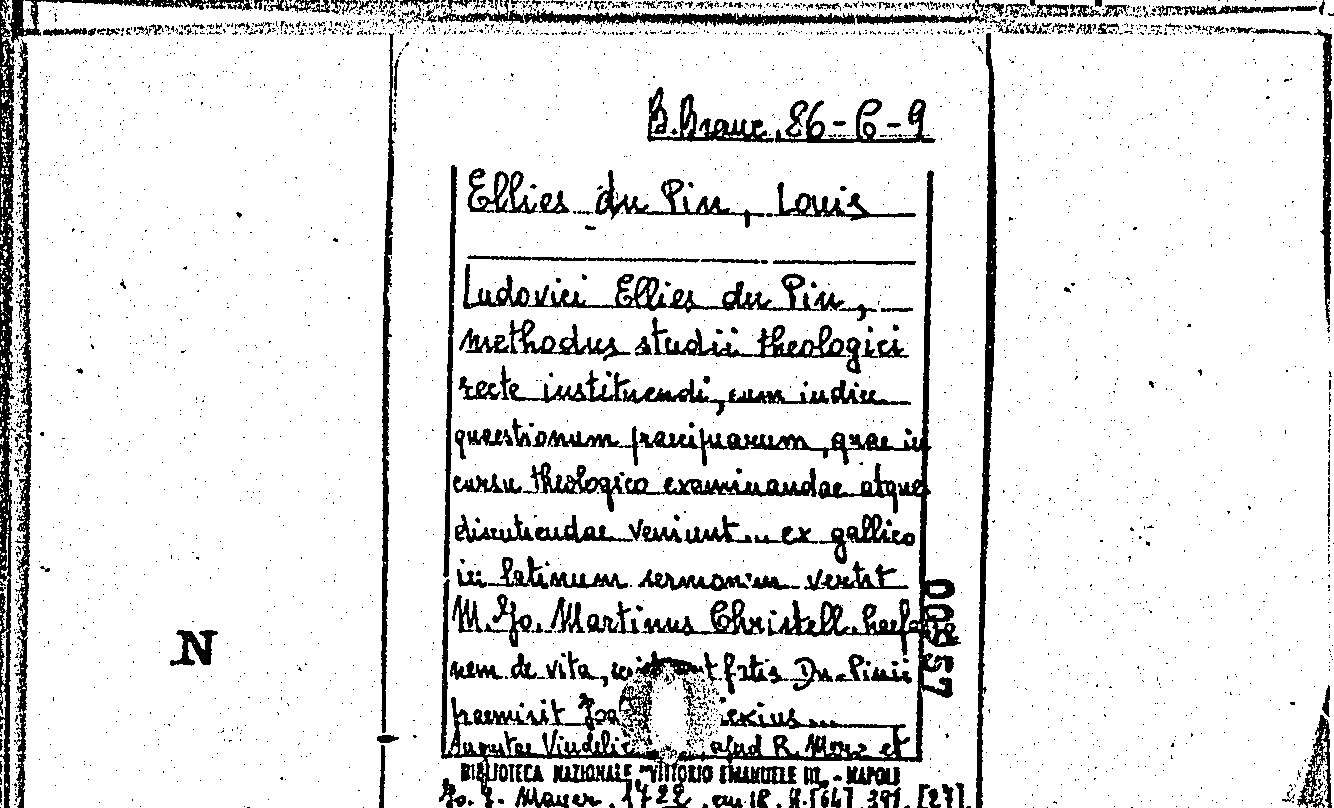 B.Branc. 86-C-9
Ellies du Pin, Louis
Ludovici Ellies du Pin,
methodus studii theologici
recte instituendi, cum indice
quaestionum praecipuarum, quae in
cursu theologico examinandae atque
discutiendae veniunt... ex gallico
in latinum sermonem vertit
M. Jo. Martinus Christell. Praefatio
nem de vita, fatis Du-Pinii
praemisit
Augustae Vindelic apud R. Merz et
BIBLIOTECA NAZIONALE "VITTORIO EMANUELE III" - NAPOLI
Jo. J. Mayer, 1722, cm 18. 8. [64] 391, [27]
N